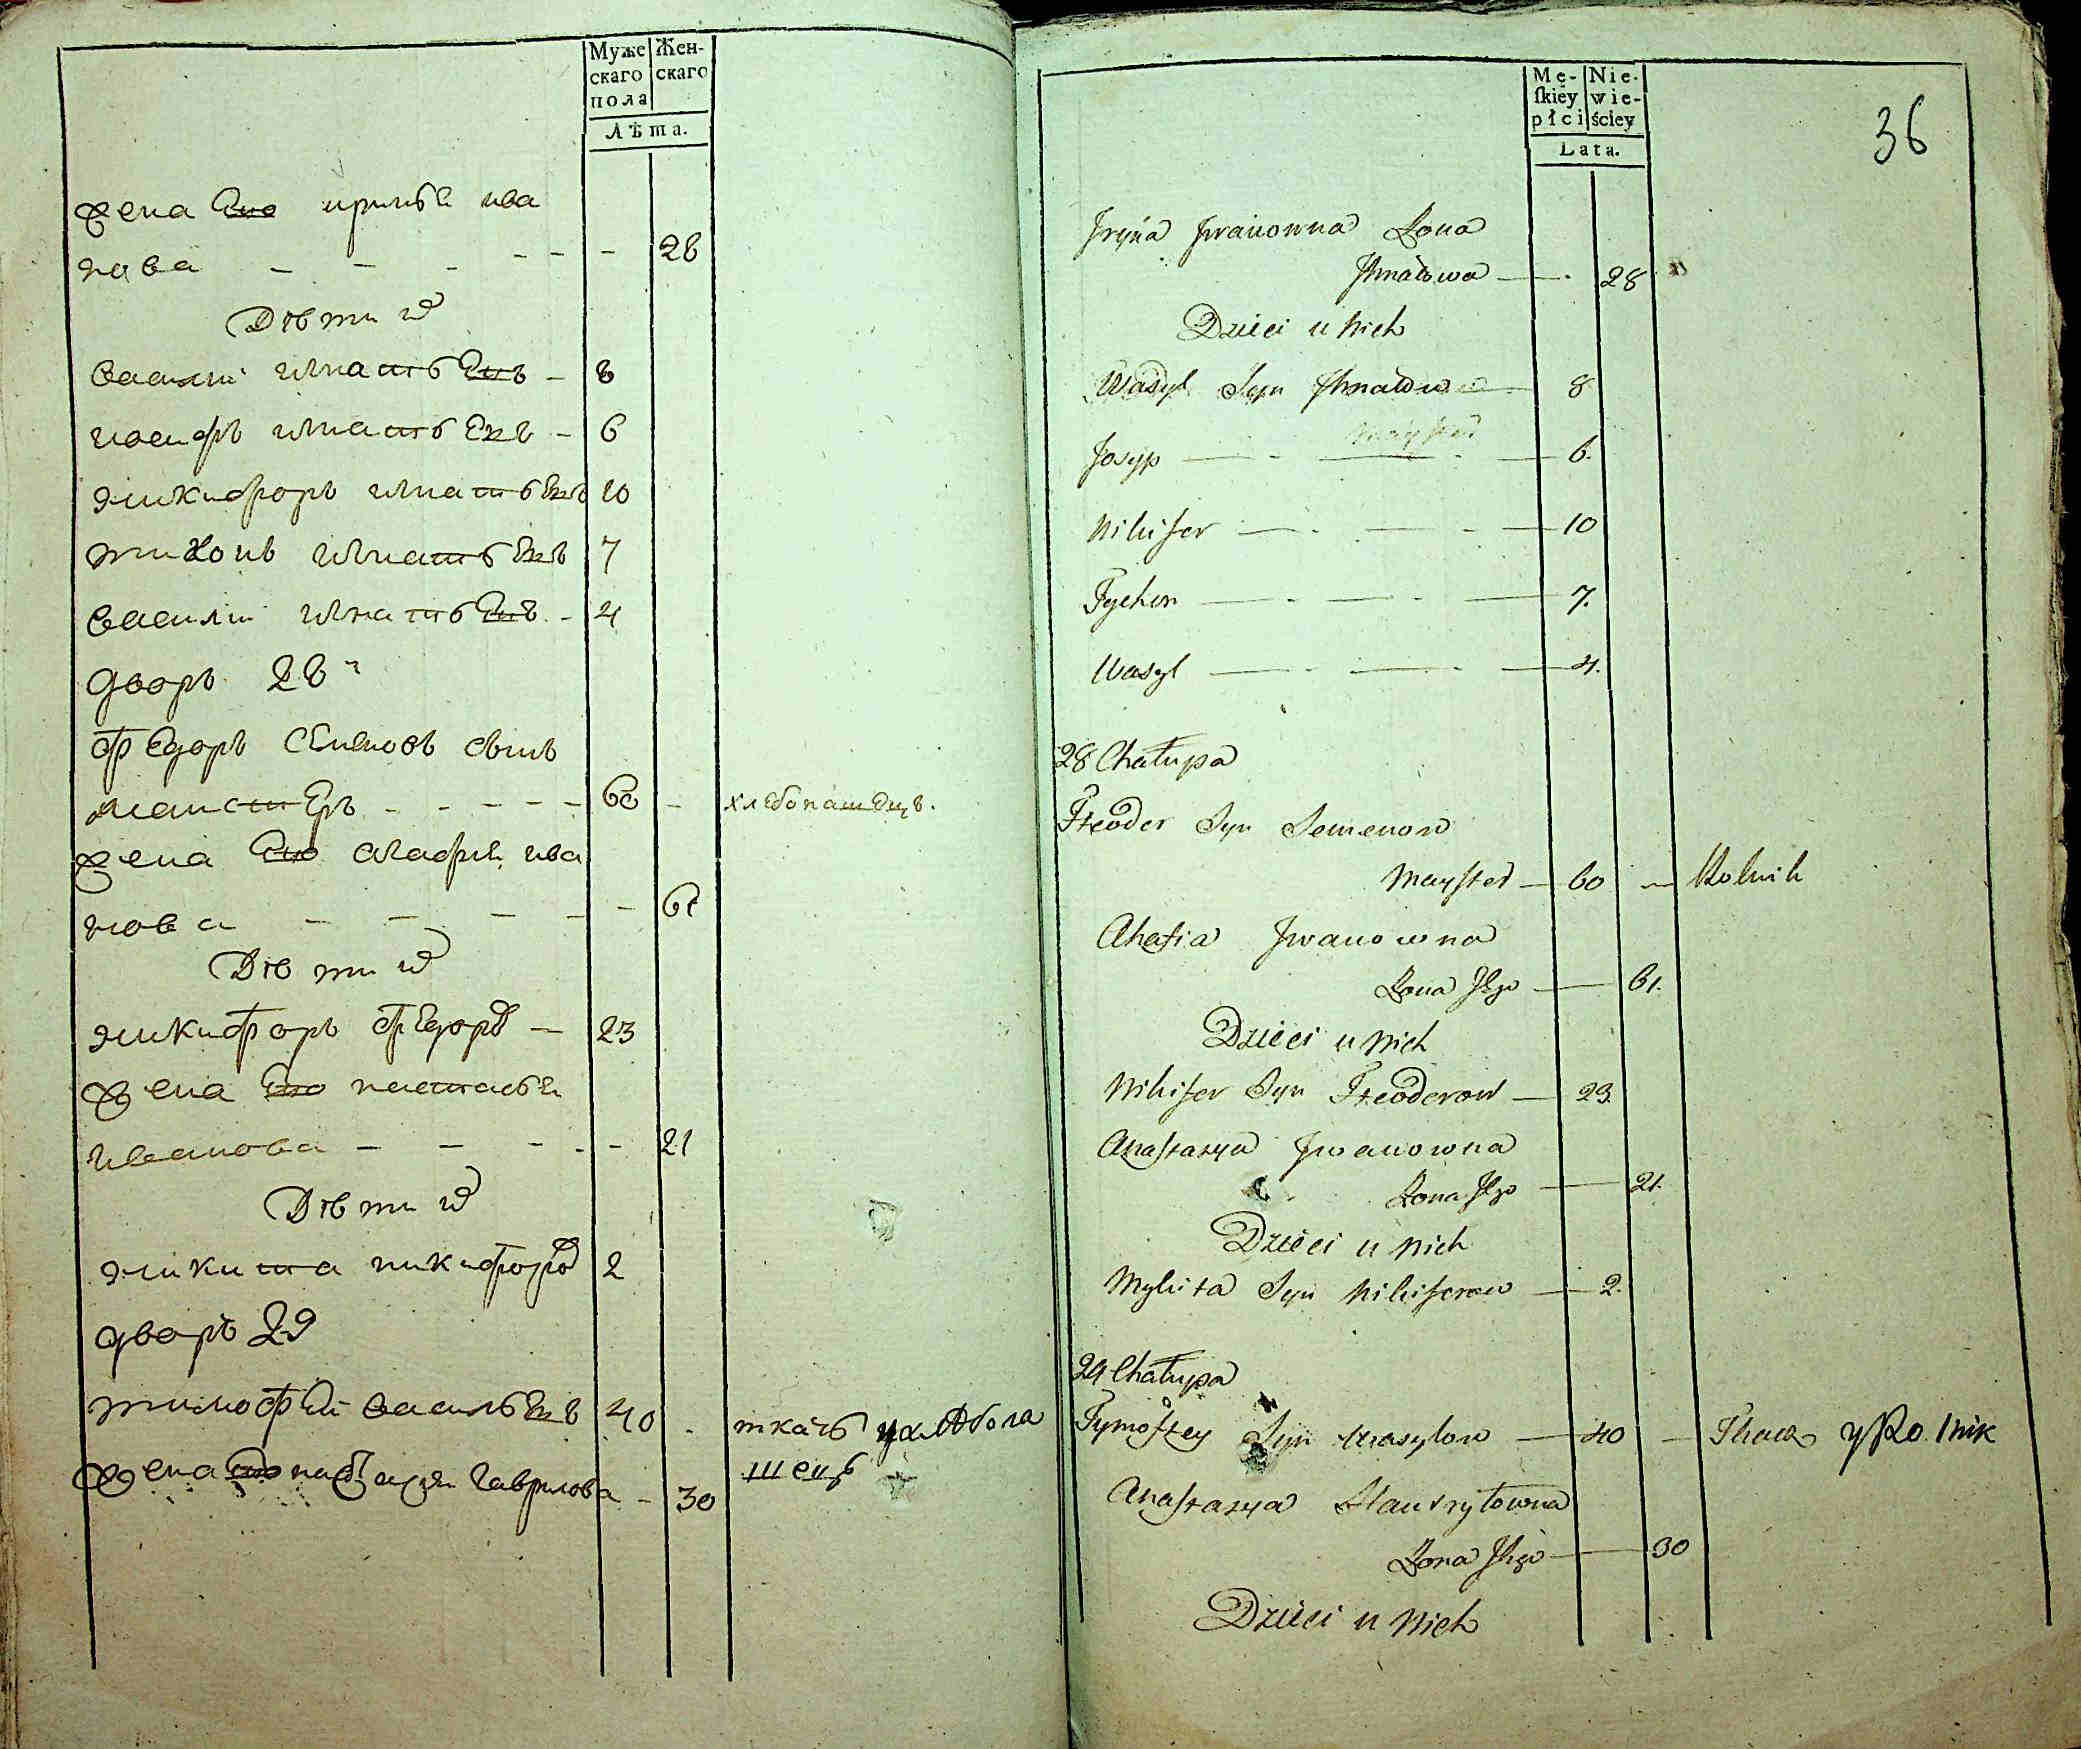 Муже
скаго
пола
Жен-
скаго
Лѣта.
жена Его ирынѣ ива
нова - - - - - - 28
Дѣти их
василий игнатьевъ - 8
иосифъ игнатьевъ - 6
никифоръ игнатьевъ 10
тихонъ игнатьевъ 7
василий игнатьевъ - 4
дворъ 28й
федоръ семеновъ сынъ
маистеръ - - - - - 60 - хлебопашецъ.
жена Его агафия ива
нова - - - - - 61
Дѣти их
никифоръ федоров - 23
жена Его настасья
иванова - - - - - 21
Дѣти их
никита никифоров 2
дворъ 29
тимофей васильевъ 40 - ткачь и хлѣбопа
шецъ
жена его настасия гаврилова - 30
Mę-
skiey
płci
Nie-
wie-
ściey
Lata.
36
Jryna Jwanowna Żona
Jhnatowa — 28
Dzieci u Nich
Wasyl Syn Jhnatow — 8
Josyp — 6.
Nikifer — 10
Tychon — 7.
Wasyl — 4.
28 Chałupa
Fteoder Syn Semenow
Mayster — 60 — Rolnik
Ahafia Jwanowna
Żona Jego — 61.
Dzieci u Nich
Nikifer Syn Fteoderow — 23.
Anastazya Jwanowna
Żona Jego — 21.
Dzieci u Nich
Mykita Syn Nikiferow — 2.
29 Chałupa
Tymoftey Syn Wasylow — 40 — Tkacz y Rolnik
Anastazya Hawryłowna
Żona Jego — 30
Dzieci u Nich